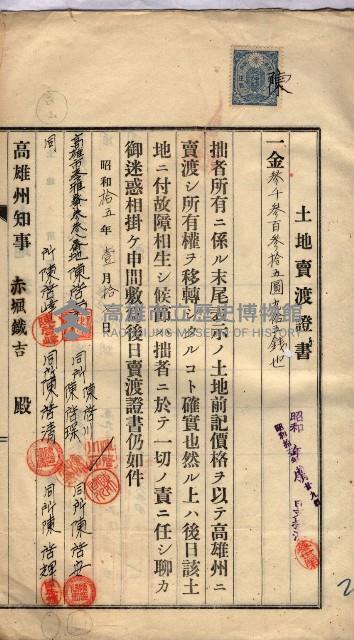 土地賣渡證書
一金參千參百參拾五圓也
拙者所有ニ係ル末尾表示ノ土地前記價格ヲ以テ高雄州ニ
賣渡シ所有權ヲ移轉シタルコト確實也然ル上ハ後日該土
地ニ付故障相生シ候節ハ拙者ニ於テ一切ノ責ニ任シ聊カ
御迷惑相掛ケ申間敷爲後日賣渡證書仍如件
昭和拾五年壹月拾日
高雄市
陳啓川
同所陳啓琛
同所陳啓安
同所陳啓清
同所陳啓輝
高雄州知事 赤堀鐵吉 殿
陳
昭和
高雄市立歷史博物館
KAOHSIUNG MUSEUM OF HISTORY
2